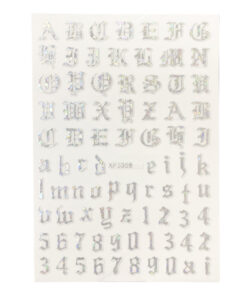 A B C D E F G
H I J K L M N
O P Q R S T U
V W X Y Z A B
C D E F G H I
a b c d e i j k
l m n o p q r s t
u v w x y z 1 2 3 4
5 6 7 8 9 0 1 3 4
3 4 5 6 7 8 9 0 a i